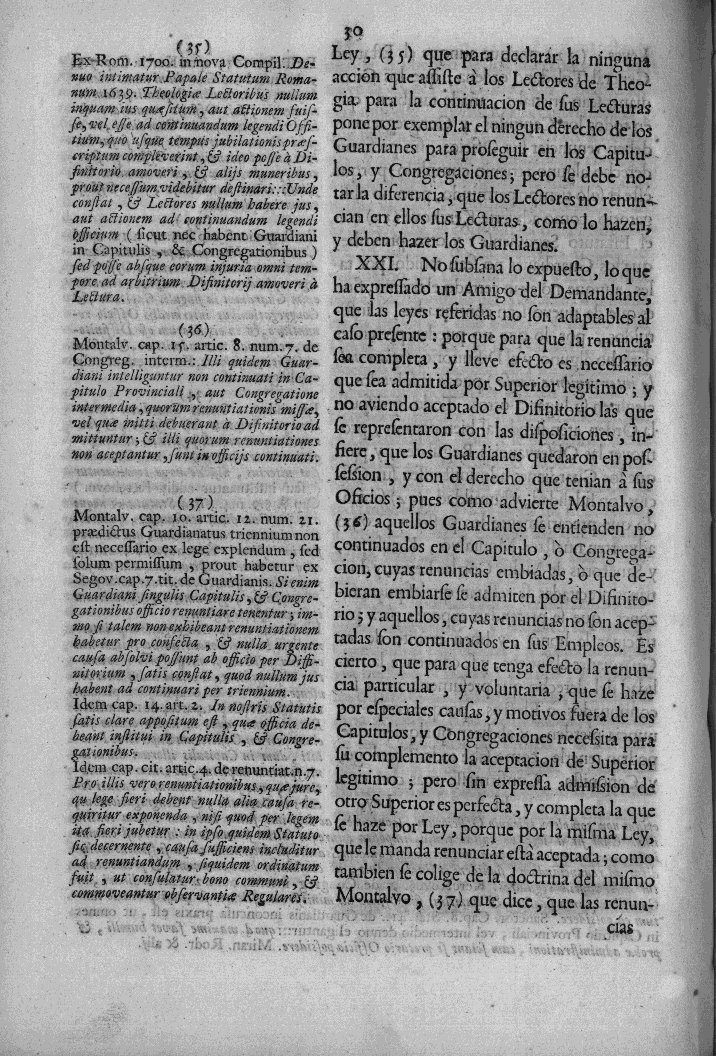 30
(35)
Ex Rom. 1700. in nova Compil. De-
nuo intimatur Papale Statutum Roma-
num 1639. Theologiæ Lectoribus nullum
inquam ius quæsitum, aut actionem fuis-
se, vel esse ad continuandum legendi Offi-
tium, quo usque tempus jubilationis præs-
criptum compleverint, & ideo posse à Di-
finitorio amoveri, & alijs muneribus,
prout necessum videbitur destinari:::Unde
constat, & Lectores nullum habere jus,
aut actionem ad continuandum legendi
officium (sicut nec habent Guardiani
in Capitulis, & Congregationibus)
sed posse absque eorum injuria omni tem-
pore ad arbitrium Difinitorij amoveri à
Lectura.
(36)
Montalv. cap. 15. artic. 8. num. 7. de
Congreg. interm.: Illi quidem Guar-
diani intelliguntur non continuati in Ca-
pitulo Provinciali, aut Congregatione
intermedia, quorum renuntiationis missæ,
vel quæ mitti debuerant à Difinitorio ad
mittuntur; & illi quorum renuntiationes
non aceptantur, sunt in officijs continuati.
(37)
Montalv. cap. 10. artic. 12. num. 21.
prædictus Guardianatus triennium non
est necessario ex lege explendum, sed
solum permissum, prout habetur ex
Segov. cap. 7. tit. de Guardianis. Si enim
Guardiani singulis Capitulis, & Congre-
gationibus officio renuntiare tenentur; im-
mo si talem non exhibeant renuntiationem
habetur pro confecta, & nulla urgente
causa absolvi possunt ab officio per Diffi-
nitorium, satis constat, quod nullum jus
habent ad continuari per triennium.
Idem cap. 14. art. 2. In nostris Statutis
satis clare appositum est, quæ officia de-
beant institui in Capitulis, & Congre-
gationibus.
Idem cap. cit. artic. 4. de renuntiat. n. 7.
Pro illis vero renuntiationibus, quæ jure,
qu lege fieri debent nulla alia causa re-
quiritur exponenda, nisi quod per legem
ita fieri jubetur: in ipso quidem Statuto
sic decernente, causa sufficiens includitur
ad renuntiandum, siquidem ordinatum
fuit, ut consulatur bono communi, &
commoveantur observantiæ Regulares.
Ley, (35) que para declarar la ninguna
acción que assiste à los Lectores de Theo-
gia para la continuacion de sus Lecturas
pone por exemplar el ningun derecho de los
Guardianes para proseguir en los Capitu-
los, y Congregaciones; pero se debe no-
tar la diferencia, que los Lectores no renun-
cian en ellos sus Lecturas, como lo hazen,
y deben hazer los Guardianes.
XXI. No subsana lo expuesto, lo que
ha expressado un Amigo del Demandante,
que las leyes referidas no son adaptables al
caso presente: porque para que la renuncia
sea completa, y lleve efecto es necessario
que sea admitida por Superior legitimo; y
no aviendo aceptado el Difinitorio las que
se representaron con las disposiciones, in-
fiere, que los Guardianes quedaron en pos-
session, y con el derecho que tenian à sus
Oficios; pues como advierte Montalvo,
(36) aquellos Guardianes se entienden no
continuados en el Capitulo, ò Congrega-
cion, cuyas renuncias embiadas, ò que de-
bieran embiarse se admiten por el Difinito-
rio; y aquellos, cuyas renuncias no son acep-
tadas son continuados en sus Empleos. Es
cierto, que para que tenga efecto la renun-
cia particular, y voluntaria, que se haze
por especiales causas, y motivos fuera de los
Capitulos, y Congregaciones necessita para
su complemento la aceptacion de Superior
legitimo; pero sin expressa admision de
otro Superior es perfecta, y completa la que
se haze por Ley, porque por la misma Ley,
que le manda renunciar està aceptada; como
tambien se colige de la doctrina del mismo
Montalvo, (37) que dice, que las renun-
cias